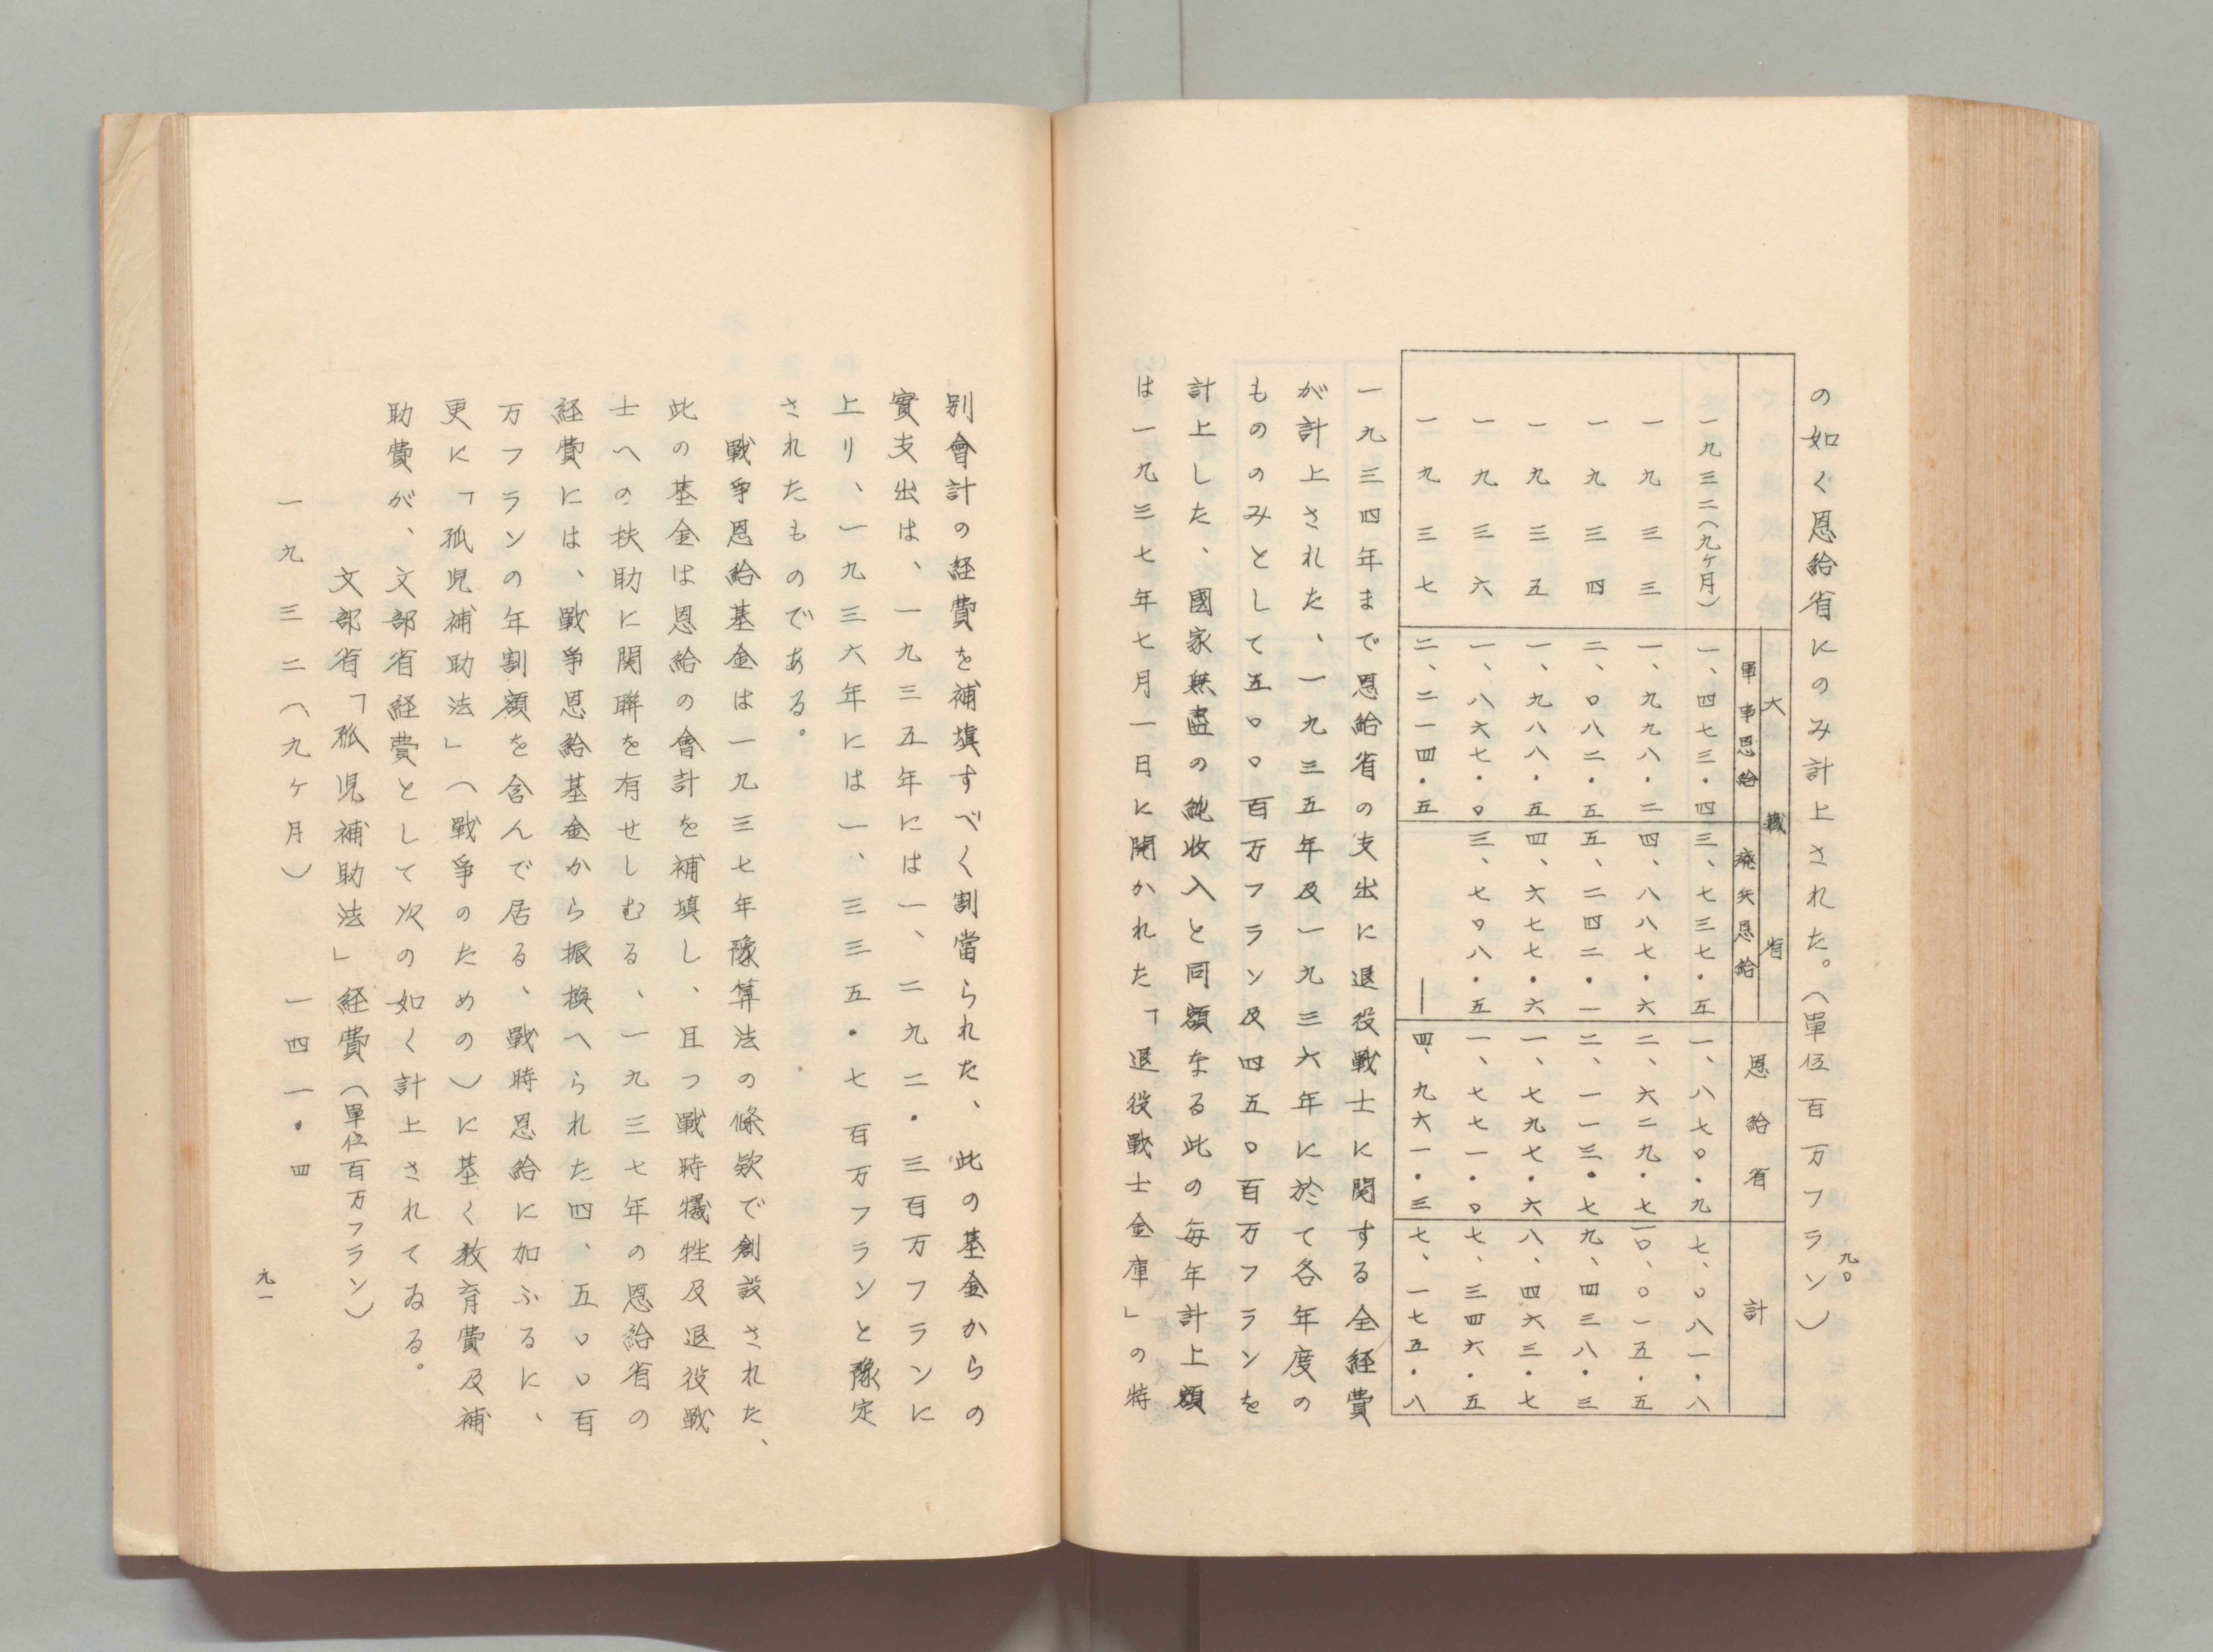 の如く恩給省にのみ計上された。（單位百万フラン）
九〇
大藏省
軍事恩給 癈兵恩給 恩給省 計
一九三二（九ヶ月） 一、四七三・四 三、七三七・五 一、八七〇・九 七、〇八一・八
一九三三 一、九九八・二 四、八八七・六 二、六二九・七 一〇、〇一五・五
一九三四 二、〇八二・五 五、二四二・一 二、一一三・七 九、四三八・三
一九三五 一、九八八・五 四、六七七・六 一、七九七・六 八、四六三・七
一九三六 一、八六七・〇 三、七〇八・五 一、七七一・〇 七、三四六・五
一九三七 二、二一四・五 ― 四、九六一・三 七、一七五・八
一九三四年まで恩給省の支出に退役戰士に関する全経費
が計上された、一九三五年及一九三六年に於て各年度の
もののみとして五〇〇百万フラン及四五〇百万フランを
計上した、國家無盡の純收入と同額なる此の毎年計上額
は一九三七年七月一日に開かれた「退役戰士金庫」の特
別會計の経費を補塡すべく割當られた、此の基金からの
實支出は、一九三五年には一、二九二・三百万フランに
上り、一九三六年には一、三三五・七百万フランと豫定
されたものである。
戰爭恩給基金は一九三七年豫算法の條欵で創設された、
此の基金は恩給の會計を補塡し、且つ戰時犧牲及退役戰
士への扶助に関聯を有せしむる、一九三七年の恩給省の
経費には、戰爭恩給基金から振換へられた四、五〇〇百
万フランの年割額を含んで居る、戰時恩給に加ふるに、
更に「孤児補助法」（戰爭のための）に基く教育費及補
助費が、文部省経費として次の如く計上されてゐる。
文部省「孤児補助法」経費（單位百万フラン）
一九三二（九ヶ月） 一四一・四
九一